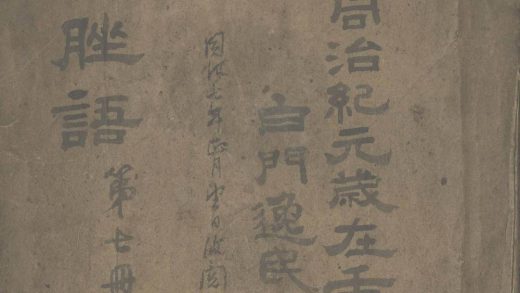 同治紀元歲在壬
白門逸民
同治七年正月望日後
脞語
第七冊